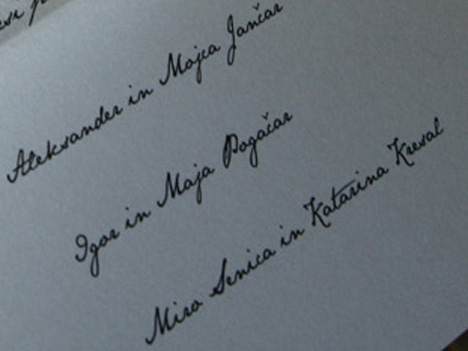 Aleksander in Mojca Jančar
Igor in Maja Pogačar
Miro Senica in Katarina Kresal